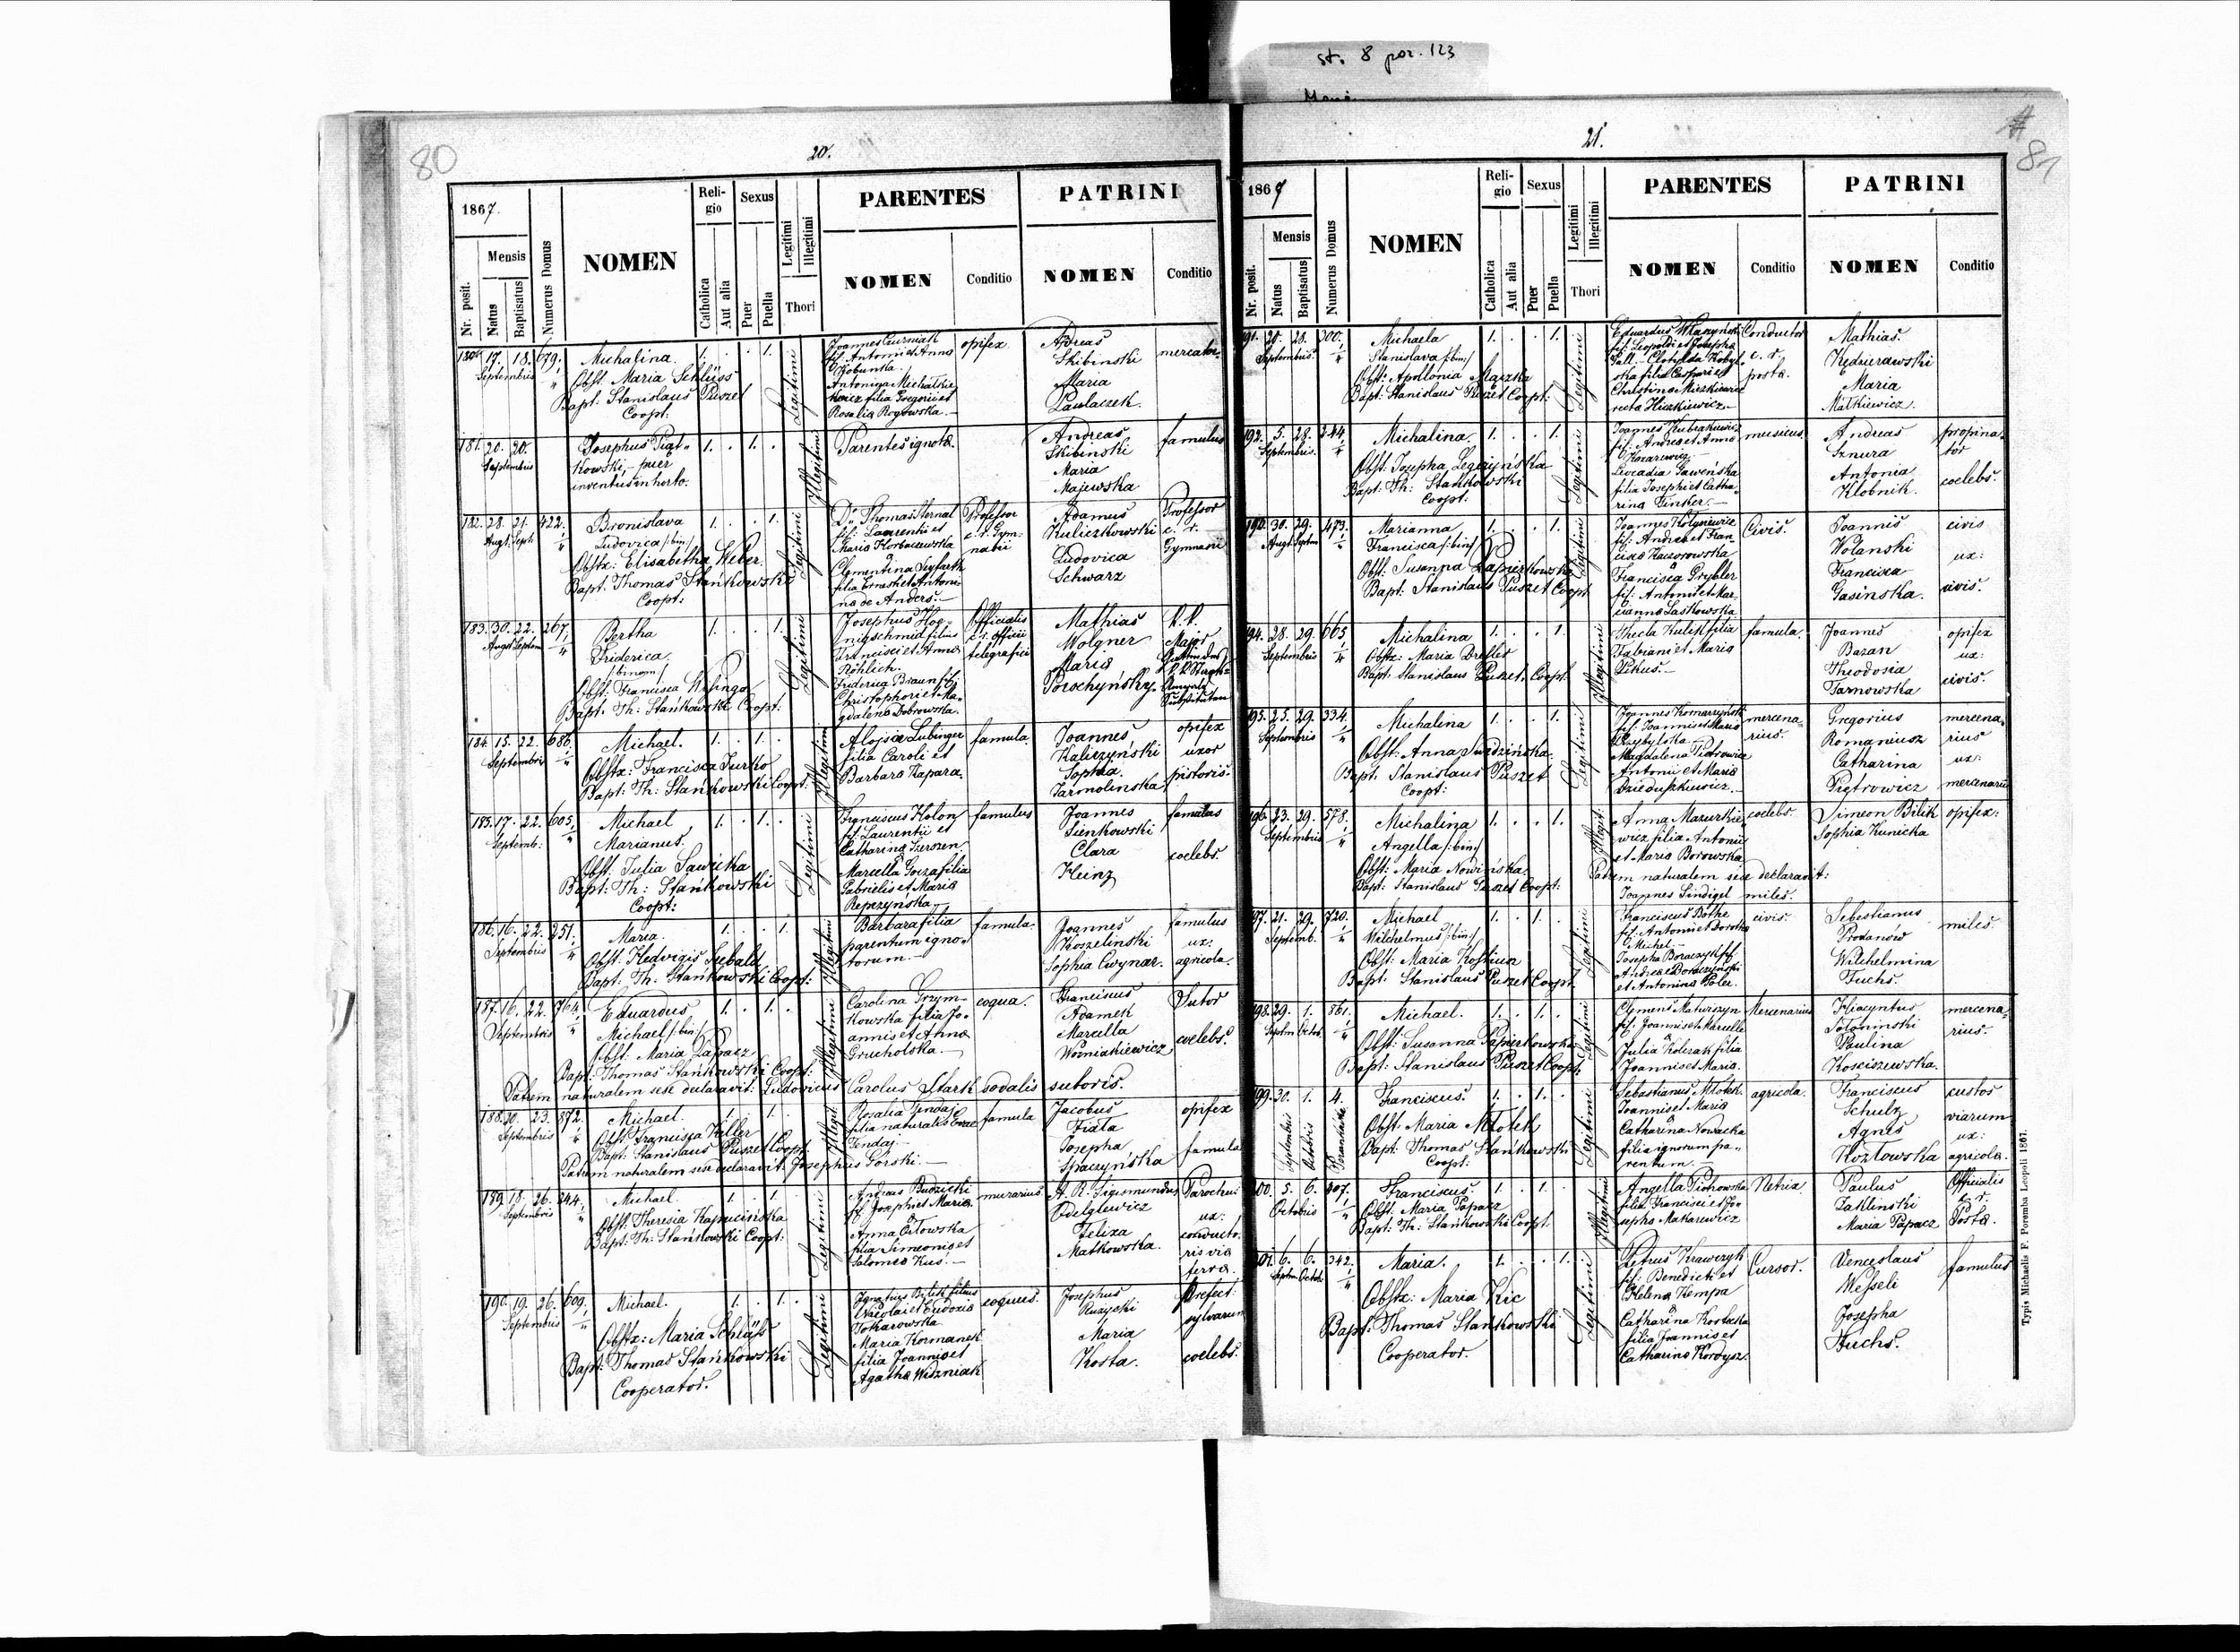 st. 8 poz. 123
80
20.
1867.
Nr. posit.
Mensis
Natus
Baptisatus
Numerus Domus
NOMEN
Reli-
gio
Catholica
Aut alia
Sexus
Puer
Puella
Legitimi
Illegitimi
Thori
PARENTES
NOMEN
Conditio
PATRINI
NOMEN
Conditio
180. 17. 18. 679.
Septembris
Michalina.
Obst. Maria Schlüss
Bapt: Stanislaus Puszet
Coopt:
1. . . 1.
Legitimi
Joannes
fil. Antonii et Anna
Antonina Michalkie
wicz filia Gregorii et
Rosalia Rogowska.
opifex.
Adreas
Skibinski
Maria
Pawlaczek.
mercator.
181. 20. 20.
Septembris
Josephus Piąt-
kowski, puer
inventus in horto.
1. . 1. .
Illegitimi
Parentes ignoti.
Andreas
Skibinski
Maria
Majewska
famulus
182. 28. 21. 422.
Augt. Sept.
Bronislava
Ludovica /:bin:/
Obstx: Elisabetha Weber.
Bapt: Thomas Stańkowski
Coopt:
1. . . 1.
Legitimi
Dr. Thomas Sternal
fil: Laurentii et
Maria Horbaczewska
Clementina Seyfarth
filia Ernesti et Antoni
na de Anders.
Professor
c. r. Gym-
nasii
Adamus
Kuliczkowski
Ludovica
Schwarz
Professor
c. r.
Gymnasii
183. 30. 22. 267.
Augt. Septem
Bertha
Friderica
/:binom:/
Obst: Francisca
Bapt. Th: Stańkowski Coopt:
1. . . 1.
Legitimi
Josephus Hoe-
nigschmid filius
Francisci et Anna
Röhlich.
Friderica Braun fil:
Christophori et Ma-
gdalena Dobrowska.
Officialis
c. r. officii
telegrafici
Mathias
Wolgner
Maria
Porschyńsky.
Major
184. 15. 22. 686.
Septembris
Michael.
Obstx: Francisca Jurko
Bapt: Th: Stańkowski Coopt:
1. . 1. .
Illegitimi
Aloisia Lubinger
filia Caroli et
Barbara Kapara.
famula.
Joannes
Kaliczyński
Sophia
Jarmolinska
opifex
uxor
pistoris.
185. 17. 22. 605.
Septemb:
Michael
Marianus.
Obst: Julia Sawicka
Bapt: Th: Stańkowski
Coopt:
1. . 1. .
Legitimi
Franciscus Holon
fil: Laurentii et
Catharina Szerszen
Marcella Gorza filia
Gabrielis et Maria
Repczyńska
famulus
Joannes
Sienkowski
Clara
Heinz
famulus
coelebs.
186. 16. 22. 251.
Septembris
Maria.
Obst: Hedvigis Siebald
Bapt: Th. Stańkowski Coopt:
1. . . 1.
Illegitimi
Barbara filia
parentum igno-
torum.
famula.
Joannes
Koszelinski
Sophia Cwynar.
famulus
ux:
agricola.
187. 16. 22. 764.
Septembris
Eduardus
Michael /:bin:/
Obst: Maria Papacz
Bapt: Thomas Stańkowski Coopt:
1. . 1. .
Illegitimi
Carolina Grzym-
kowska filia Jo-
annis et Anna
Grucholska.
coqua.
Franciscus
Adamek
Marcella
Wozniakiewicz
Sutor
coelebs.
Patrem naturalem sese declaravit: Ludovicus Carolus Stark sodalis sutoris.
188. 20. 23. 872.
Septembris
Michael.
Obst: Francisca Keller
Bapt: Stanislaus Puszet Coopt:
1. . 1. .
Illegit.
Rosalia Gendaj
filia naturalis Evae
Gendaj
famula
Jacobus
Fiala
Josepha
Spaczyńska
opifex
famula
Patrem naturalem sese declaravit Josephus Górski.
189. 18. 26. 244.
Septembris
Michael.
Obst. Theresia Kapucińska
Bapt: Th: Stańkowski Coopt:
1. . 1. .
Legitimi
Andreas Budzicki
fil. Josephi et Maria
Anna Orłowska
filia Simeonis et
Salomea Kuś.
murarius.
A. R. Sigismundus
Odelgiewicz
Felixa
Matkowska.
Parochus
ux:
conducto-
ris via
ferra.
190. 19. 26. 609.
Septembris
Michael.
Obstx: Maria Schlüss
Bapt: Thomas Stańkowski
Cooperator.
1. . 1. .
Legitimi
Ignatius Bilik filius
Nicolai et Eudoxia
Tokarowska
Maria Kormanek
filia Joannis et
Agatha Wozniak
coquus.
Josephus
Ruzycki
Maria
Kosta.
Prefect:
sylvarum
coelebs.
81
21.
1867
Nr. posit.
Mensis
Natus
Baptisatus
Numerus Domus
NOMEN
Reli-
gio
Catholica
Aut alia
Sexus
Puer
Puella
Legitimi
Illegitimi
Thori
PARENTES
NOMEN
Conditio
PATRINI
NOMEN
Conditio
191. 20. 28. 300.
Septembris
Michaela
Stanislava /:bin:/
Obst: Apollonia Mączka
Bapt: Stanislaus Puszet Coopt:
1. . . 1.
Legitimi
Eduardus
fil: Leopoldi et Josepha
Clotylda Kobyl-
ska filia Caspari et
Christina Miczkiewicz
recta Hiczkiewicz.
Conductor
c. r.
posta.
Mathias.
Kędzierawski
Maria
Matkiewicz.
192. 5. 28. 244.
Septembris.
Michalina.
Obst: Josepha Legezyńska
Bapt: Th: Stańkowski
Coopt:
1. . . 1.
Legitimi
Joannes Kubrakiewicz
fil: Andrea et Anna
Leocadia Gawenska
filia Josephi et Catha-
rina Finker.
musicus.
Andreas
Sznura
Antonia
Klobnik.
propina-
tor
coelebs.
193. 30. 29. 473.
Augt. Septem
Marianna
Francisca /:bin:/
Obst: Susanna Papierkowska
Bapt: Stanislaus Puszet Coopt
1. . . 1.
Legitimi
Joannes
fil: Andrea et Fran
cisca Kaczorowska
Francisca Grybler
fil: Antonii et Mar-
cianna Laskowska
Civis.
Joannes
Wolanski
Francisca
Gasinska.
civis
ux:
civis.
194. 28. 29. 665.
Septembris
Michalina
Obstx: Maria Dresler
Bapt: Stanislaus Puszet. Coopt.
1. . . 1.
Illegitimi
Thecla Kulik filia
Fabiani et Maria
Pikus.
famula.
Joannes
Bazan
Theodosia
Tarnowska
opifex
ux:
civis.
195. 25. 29. 334.
Septembris
Michalina
Obst: Anna Swidzińska.
Bapt: Stanislaus Puszet
Coopt:
1. . . 1.
Legitimi
Joannes Komarzyński
fil: Joannis et Maria
Przybylska.
Magdalena Piotrowicz
Antonii et Maria
Dzieduszkiewicz.
mercena-
rius.
Gregorius
Romaniusz
Catharina
Piątrowicz
mercena-
rius
ux:
mercenarii
196. 23. 29. 578.
Septembris
Michalina
Angella /:bin:/
Obst: Maria Nowińska.
Bapt: Stanislaus Puszet Coopt:
1. . . 1.
Illegit:
Anna Mazurkie-
wicz filia Antonii
et Maria Borowska
coelebs.
Simeon Bilik
Sophia Kunicka
opifex.
Patrem naturalem sese declaravit:
Joannes Sindigel miles.
197. 21. 29. 720.
Septemb.
Michael
Wilchelmus /:bin:/
Obst: Maria Kostiuz
Bapt: Stanislaus Puszet Coopt
1. . 1. .
Legitimi
Franciscus Bothe
fil: Antonii et Dorotha
Michel.
Josepha Boraczyk
Andrea Boraczyński
et Antonina Poler.
civis.
Sebestianus
Prodanów
Wilchelmina
Fuchs.
miles.
198. 29. 1. 861.
Septem Octob.
Michael.
Obst: Susanna Papierkowska
Bapt: Stanislaus Puszet Coopt.
1. . 1. .
Legitimi
Clemens Maturszyn
fil: Joannis et Marcella
Julia Kolczak filia
Joannis et Maria.
Mercenarius
Hiacyntus
Sołoninski
Paulina
Kosciszewska.
mercena-
rius.
199. 30. 1. 4.
Septembris
Octobris
Franciscus.
Obst: Maria Młotek
Bapt: Thomas Stańkowski
Coopt:
1. . 1. .
Legitimi
Sebastianus Młotek
Joannis et Maria
Catharina Nowacka
filia ignorum pa-
rentum.
agricola.
Franciscus
Schulz
Agnes
Kozłowska
custos
viarum
ux:
agricola.
200. 5. 6. 807.
Octobris
Franciscus.
Obst: Maria Papacz
Bapt: Th: Stańkowski Coopt.
1. . 1. .
Illegitimi
Angella Piotrowska
filia Francisci et Jo-
sepha Makarewicz
Netrix.
Paulus
Zaklinski
Maria Papacz
Officialis
c. r.
Posta.
201. 6. 6. 342.
Septem Octob.
Maria.
Obstx: Maria Kic
Bapt: Thomas Stańkowski
Cooperator.
1. . . 1.
Legitimi
Petrus Krawczyk
fil: Benedicti et
Helena Kempa
Catharina Kostecka
filia Joannis et
Catharina Kordysz.
Cursor.
Venceslaus
Wesseli
Josepha
Fuchs.
famulus
Typis Michaelis F. Poremba Leopoli 1867.